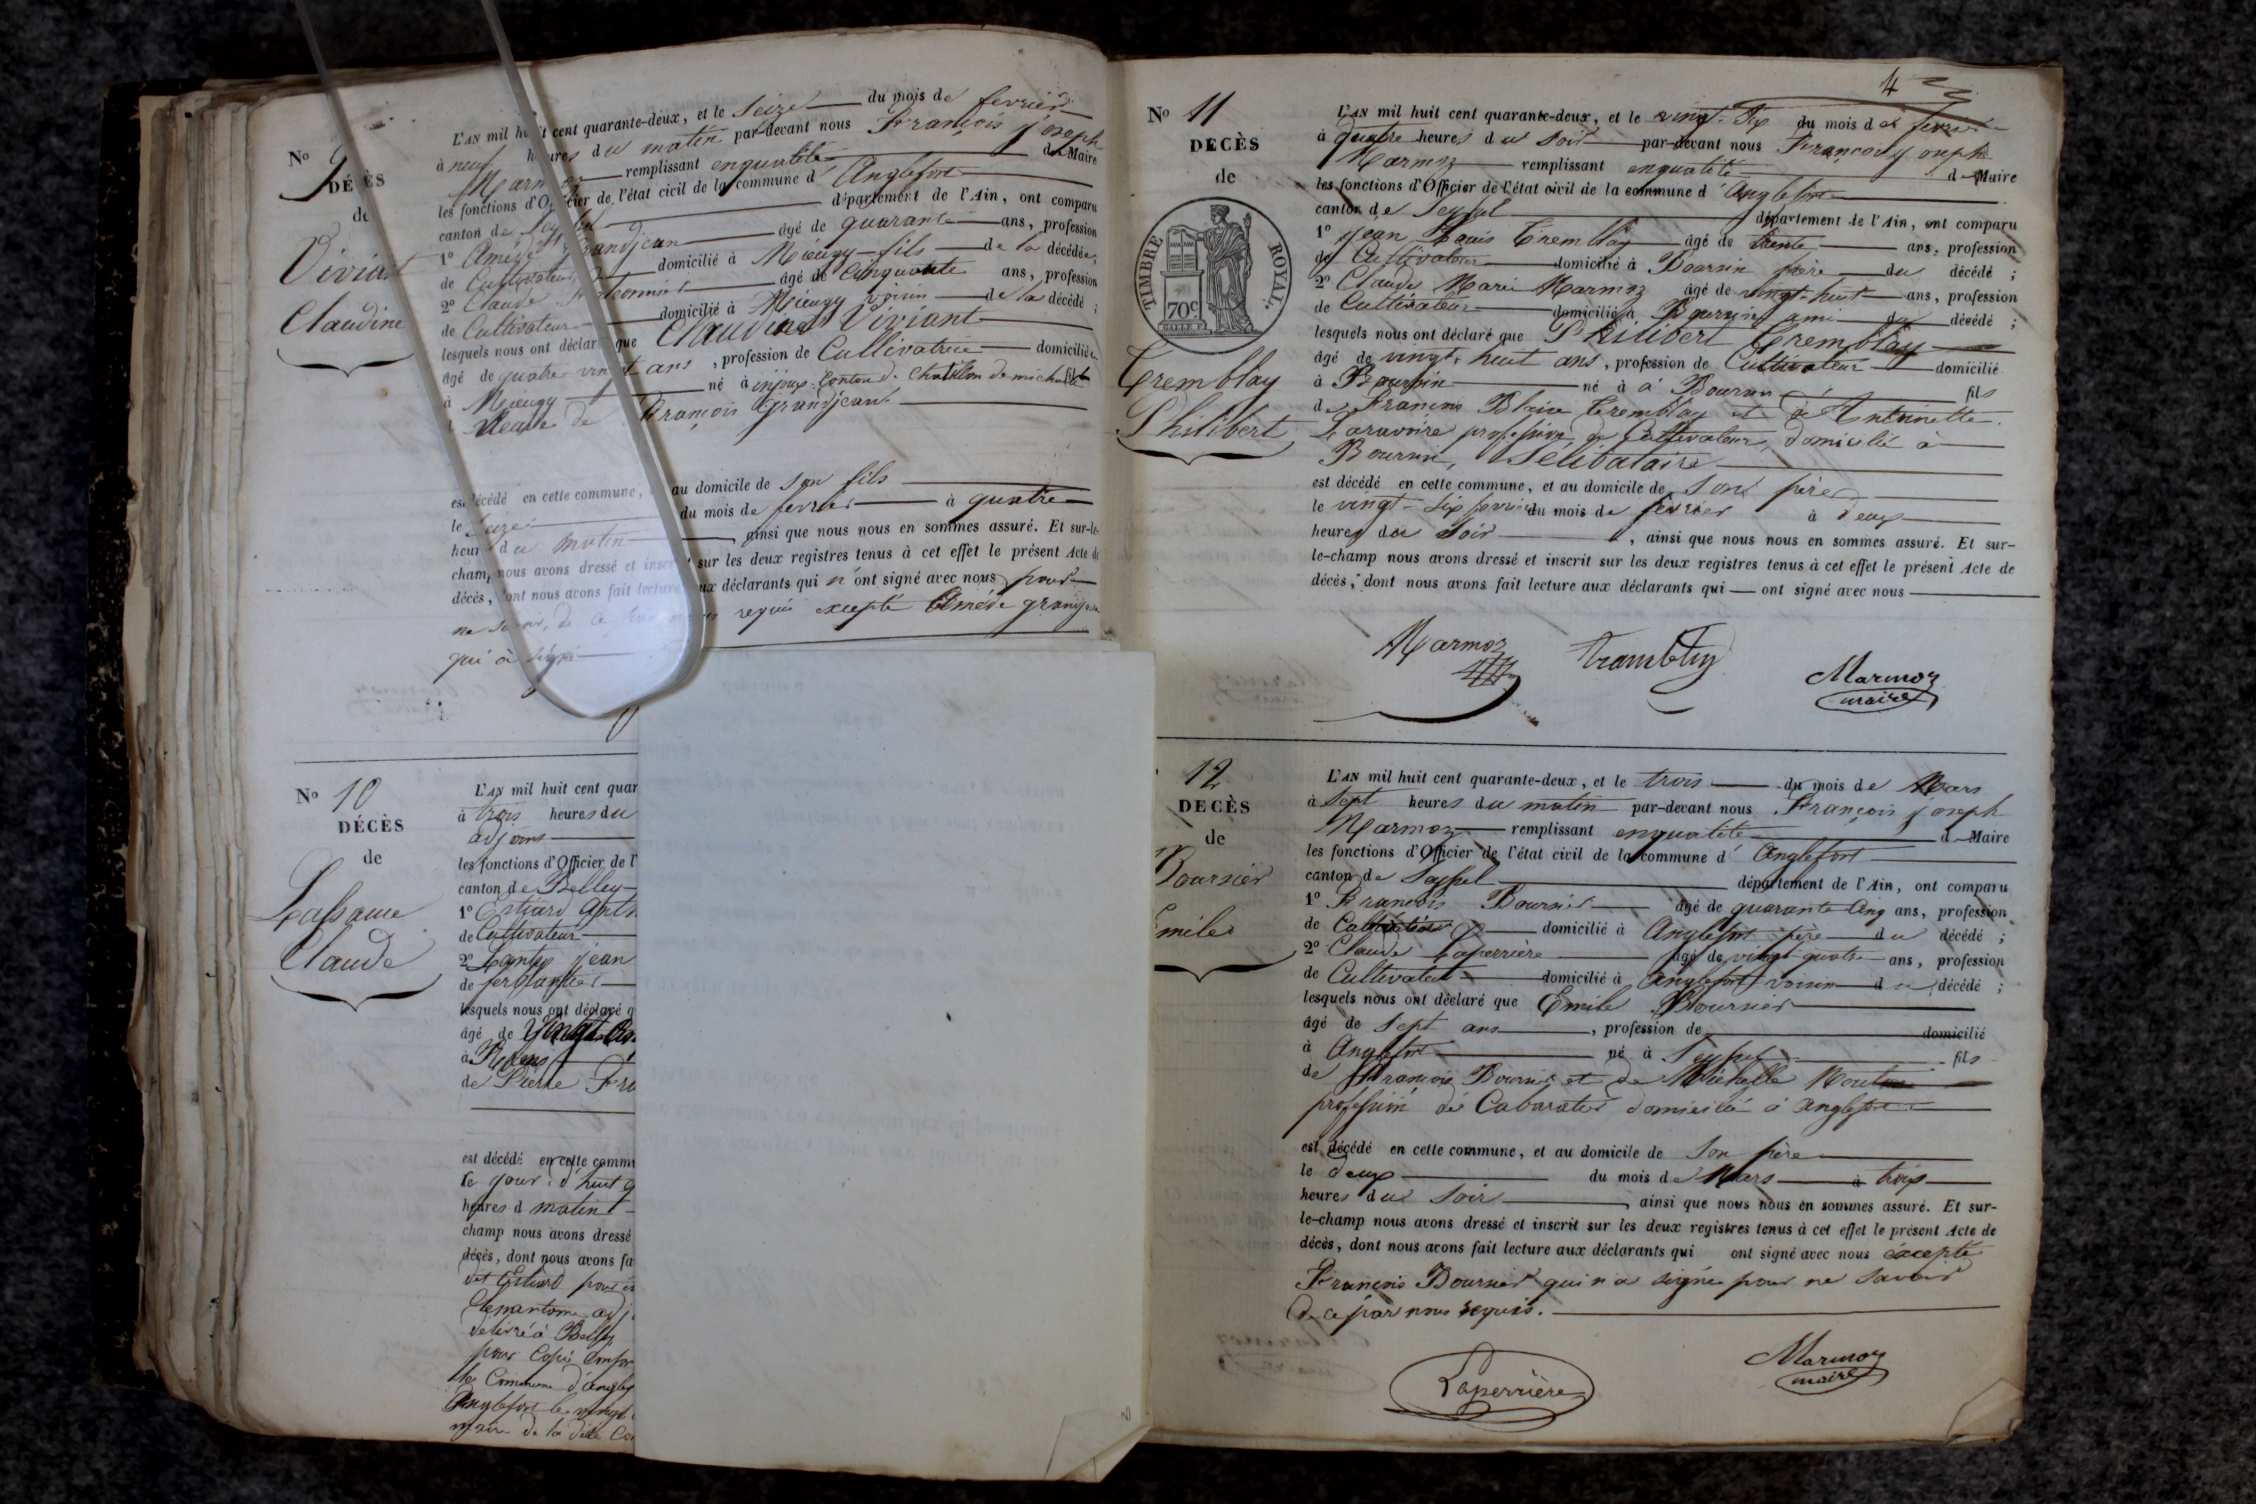 No 9
DÉCÈS
de
Viviant
Claudine
L'AN mil huit cent quarante-deux, et le Seize du mois de fevrier
à neuf heures du matin par-devant nous François joseph
Marmoz remplissant enqualité de Maire
les fonctions d'Officier de l'état civil de la commune d' Anglefort
canton de département de l'Ain, ont comparu
1o Amédé Grandjean âgé de quarante ans, profession
de Cultivateur domicilié à Mieugy fils de la décédée;
2o Claude âgé de Cinquante ans, profession
de Cultivateur domicilié à Mieugy voisin de la décédé;
lesquels nous ont déclaré que Claudine Viviant
âgé de quatre vingt ans, profession de Cultivatrice domiciliée
à Mieugy né à injoux Canton de Chatillon de michaille fille
Veuve de François Grandjean
est décédé en cette commune, au domicile de son fils
le Seize du mois de fevrier à quatre
heures du matin, ainsi que nous nous en sommes assuré. Et sur-le-
champ nous avons dressé et inscrit sur les deux registres tenus à cet effet le présent Acte de
décès, dont nous avons fait lecture aux déclarants qui n'ont signé avec nous pour
ne savoir, de ce requis excepté Amédé grandjean
qui à signé
No 10
DÉCÈS
de
Lassaue
Claude
L'AN mil huit cent quar
à trois heures du
adjoins
les fonctions d'Officier de l'
canton de Belley
1o Estiard Anth
de Cultivateur
2o jean
de ferblantier
lesquels nous ont déclaré q
âgé de Vingt
à
de Pierre Fra
est décédé en cette commu
le jour d'huit
heures d matin
champ nous avons dressé
décès, dont nous avons fa
dit Estiard pour
adj
delivré à Belley
pour Copie Confor
la Commune d'anglef
Anglefort le vingt
maire de la dite Co
4
No 11
DECÈS
de
TIMBRE ROYAL
70c
Tremblay
Philibert
L'AN mil huit cent quarante-deux, et le vingt-six du mois de fevrier
à quatre heures du soir par-devant nous François joseph
Marmoz remplissant enqualité de Maire
les fonctions d'Officier de l'état civil de la commune d'Anglefort
canton de Seyssel département de l'Ain, ont comparu
1o jean Louis Tremblay âgé de trente ans, profession
de Cultivateur domicilié à Boursin frère du décédé;
2o Claude Marie Marmoz âgé de vingt-huit ans, profession
de Cultivateur domicilié à Boursin ami du décédé;
lesquels nous ont déclaré que Philibert Tremblay
âgé de vingt-huit ans, profession de Cultivateur domicilié
à Boursin né à à Boursin fils
de François Blaise Tremblay et de Antoinette
Laravoire profession de Cultivateur, domicilié à
Boursin, Sélibataire
est décédé en cette commune, et au domicile de Son père
le vingt-six fevrier du mois de fevrier à deux
heures du soir, ainsi que nous nous en sommes assuré. Et sur-
le-champ nous avons dressé et inscrit sur les deux registres tenus à cet effet le présent Acte de
décès, dont nous avons fait lecture aux déclarants qui ont signé avec nous
Marmoz Trambley Marmoz
maire
12
DECÈS
de
Boursier
Emile
L'AN mil huit cent quarante-deux, et le trois du mois de Mars
à Sept heures du matin par-devant nous François joseph
Marmoz remplissant enqualité d Maire
les fonctions d'Officier de l'état civil de la commune d' Anglefort
canton de Seyssel département de l'Ain, ont comparu
1o François Boursier âgé de quarante Cinq ans, profession
de domicilié à Anglefort père du décédé;
2o Claude Laperrière âgé de vingt quatre ans, profession
de Cultivateur domicilié à Anglefort voisin du décédé;
lesquels nous ont déclaré que Emile Boursier
âgé de Sept ans, profession de domicilié
à Anglefort né à Seyssel fils
de François Boursier et de Michelle
profession de Cabaratier domicilié à Anglefort
est décédé en cette commune, et au domicile de Son père
le deux du mois de Mars à trois
heures du Soir, ainsi que nous nous en sommes assuré. Et sur-
le-champ nous avons dressé et inscrit sur les deux registres tenus à cet effet le présent Acte de
décès, dont nous avons fait lecture aux déclarants qui ont signé avec nous excepté
François Boursier qui n'a signée pour ne savoir
de ce par nous requis.
Laperrière Marmoz
maire